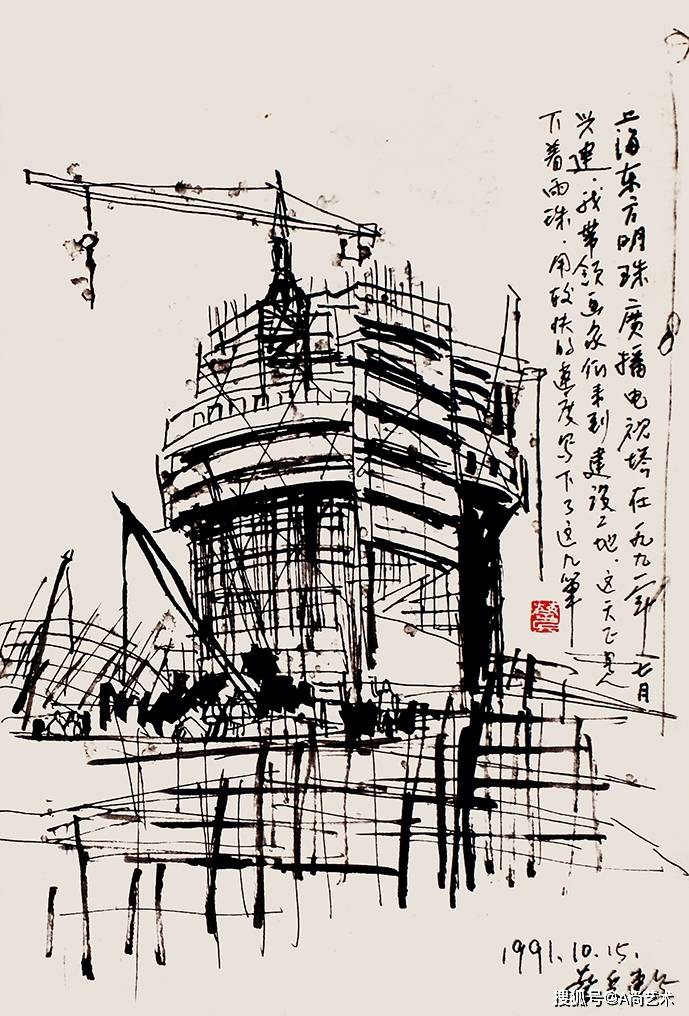 上海东方明珠廣播电视塔在一九九一年七月
兴建.我带领画家们来到建设工地.这天正是
下着雨珠.用较快的速度写下了这几筆
1991.10.15.
搜狐号@A尚艺术